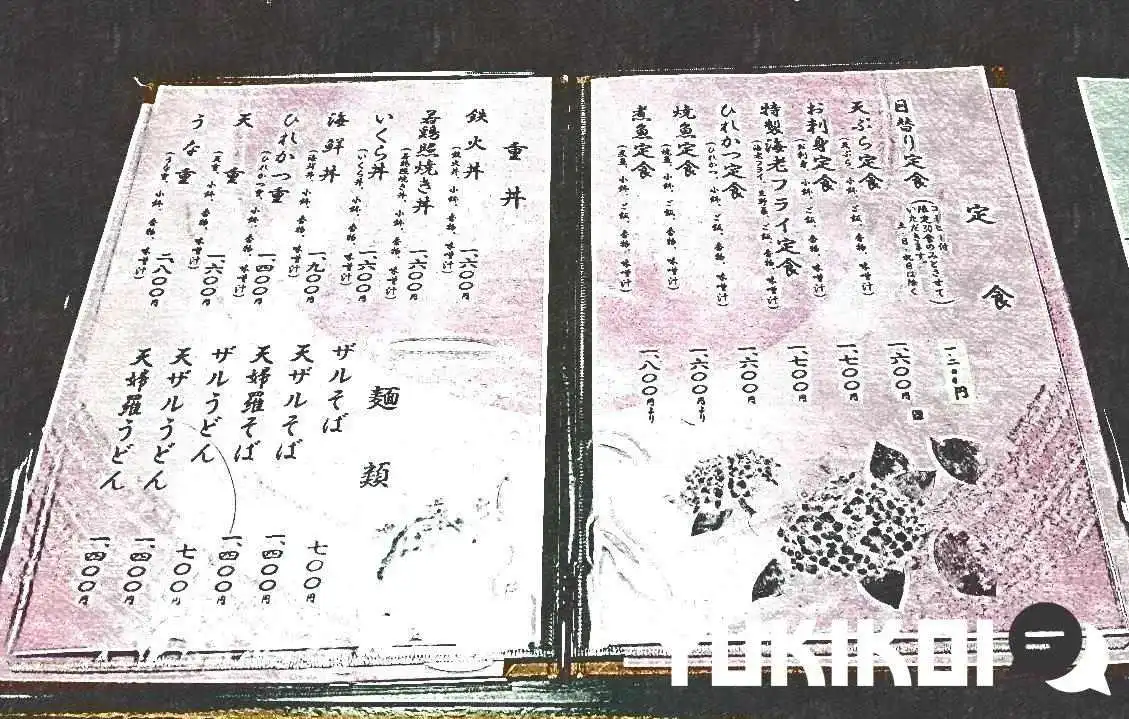 定食
日替り定食
コーヒー付
限定30食のみとさせて
いただきます。
土、日、祝日は除く
一、二〇〇円
天ぷら定食
(天ぷら、小鉢、ご飯、香物、味噌汁)
一、六〇〇円
お刺身定食
(お刺身、小鉢、ご飯、香物、味噌汁)
一、七〇〇円
特製海老フライ定食
(海老フライ、生野菜、ご飯、香物、味噌汁)
一、七〇〇円
ひれかつ定食
(ひれかつ、小鉢、ご飯、香物、味噌汁)
一、六〇〇円
焼魚定食
(焼魚、小鉢、ご飯、香物、味噌汁)
一、六〇〇円より
煮魚定食
(煮魚、小鉢、ご飯、香物、味噌汁)
一、八〇〇円より
重丼
鉄火丼
(鉄火丼、小鉢、香物、味噌汁)
一、六〇〇円
若鶏照焼き丼
(若鶏照焼き丼、小鉢、香物、味噌汁)
一、六〇〇円
いくら丼
(いくら丼、小鉢、香物、味噌汁)
一、六〇〇円
海鮮丼
(海鮮丼、小鉢、香物、味噌汁)
一、九〇〇円
ひれかつ重
(ひれかつ重、小鉢、香物、味噌汁)
一、四〇〇円
天重
(天重、小鉢、香物、味噌汁)
一、六〇〇円
うな重
(うな重、小鉢、香物、味噌汁)
二、八〇〇円
麺類
ザルそば
七〇〇円
天ザルそば
一、四〇〇円
天婦羅そば
一、四〇〇円
ザルうどん
七〇〇円
天ザルうどん
一、四〇〇円
天婦羅うどん
一、四〇〇円
YUKIKOI